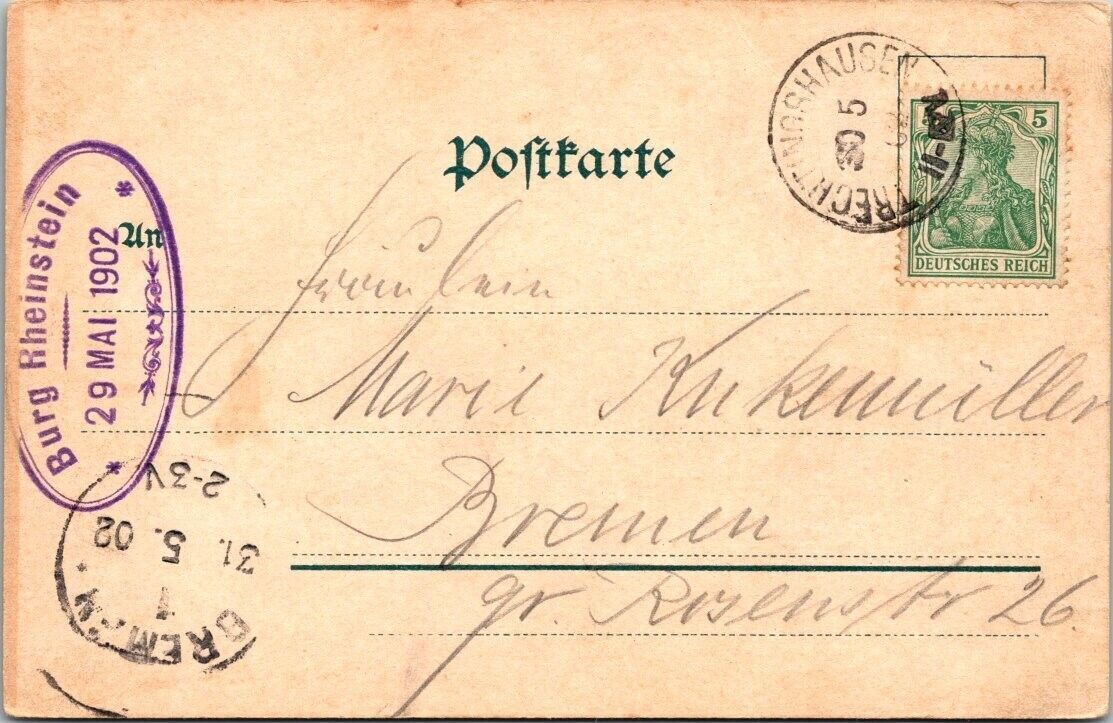 Postkarte
An
Fräulein
Marie Kukemüller
Bremen
gr. Rosenstr 26.
Burg Rheinstein
29 MAI 1902
TRECHTINGSHAUSEN
30 5
5
DEUTSCHES REICH
BREMEN
1
31. 5. 02
2-3V